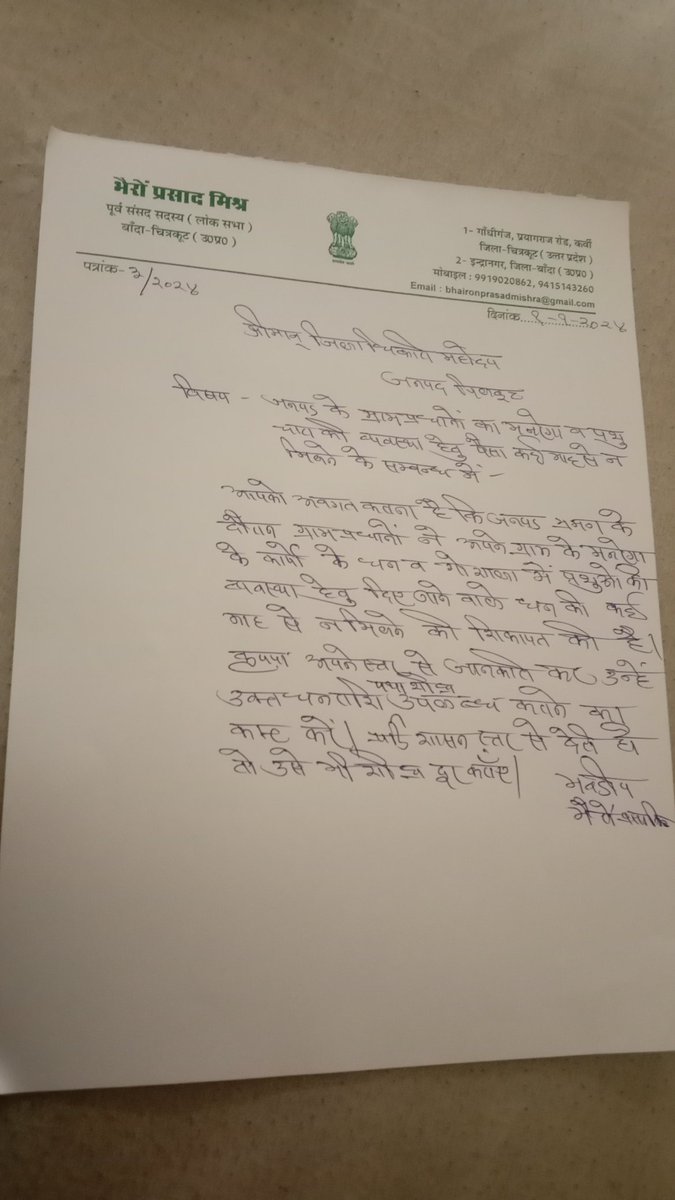 भैरों प्रसाद मिश्र
पूर्व संसद सदस्य ( लोक सभा )
बाँदा-चित्रकूट ( उ0प्र0 )
1- गाँधीगंज, प्रयागराज रोड, कर्वी
जिला-चित्रकूट ( उत्तर प्रदेश )
2- इन्द्रानगर, जिला-बाँदा ( उ0प्र0 )
मोबाइल : 9919020862, 9415143260
Email : bhaironprasadmishra@gmail.com
पत्रांक- 3/2024
दिनांक 9-1-2024
श्रीमान् जिलाधिकारी महोदय
जनपद चित्रकूट
विषय - जनपद के ग्रामप्रधानों को मनरेगा व पशु
चारा की व्यवस्था हेतु पैसा कई माह से न
मिलने के सम्बन्ध में:-
आपको अवगत कराना है कि जनपद भ्रमण के
दौरान ग्रामप्रधानों ने अपने ग्राम के मनरेगा
के कार्यों के धन व गोशाला में पशुओं की
व्यवस्था हेतु दिए जाने वाले धन की कई
माह से न मिलने की शिकायत की है।
कृपया अपने स्तर से जानकारी कर उन्हें
उक्त धनराशि यथाशीघ्र उपलब्ध कराने का
कष्ट करें। यदि शासन स्तर से देरी हो
तो उसे भी शीघ्र दूर कराएँ।
भवदीय